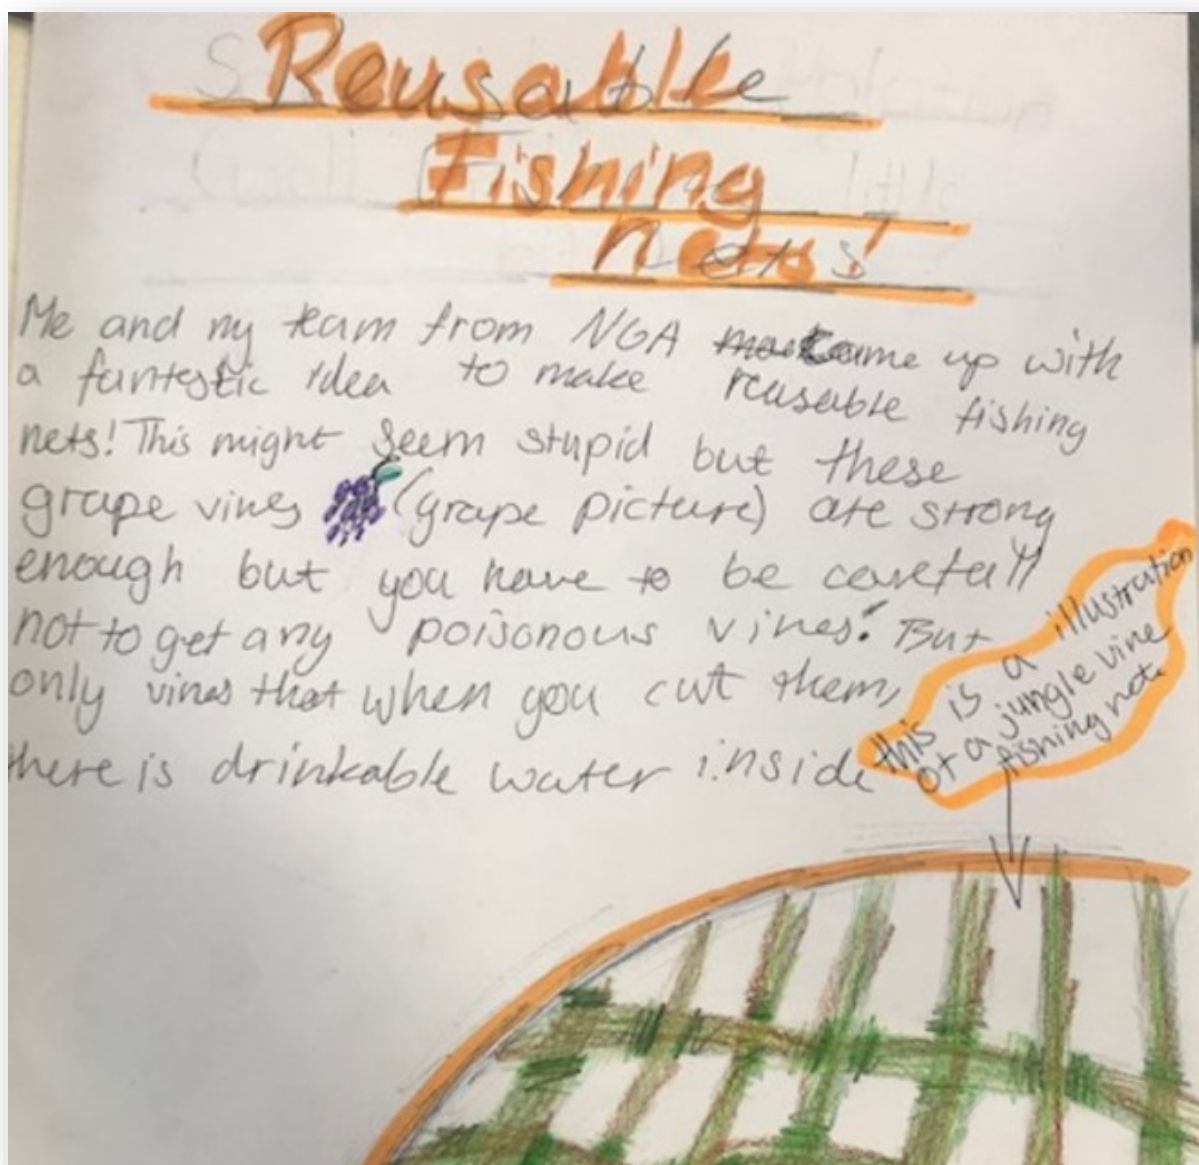 Reusable
Fishing
nets!
Me and my team from NGA came up with
a fantestic idea to make reusable fishing
nets! This might seem stupid but these
grape vines (grape picture) are strong
enough but you have to be carefull
not to get any poisonous vines! But
only vines that when you cut them,
there is drinkable water inside
this is a illustration
of a jungle vine
fishing net